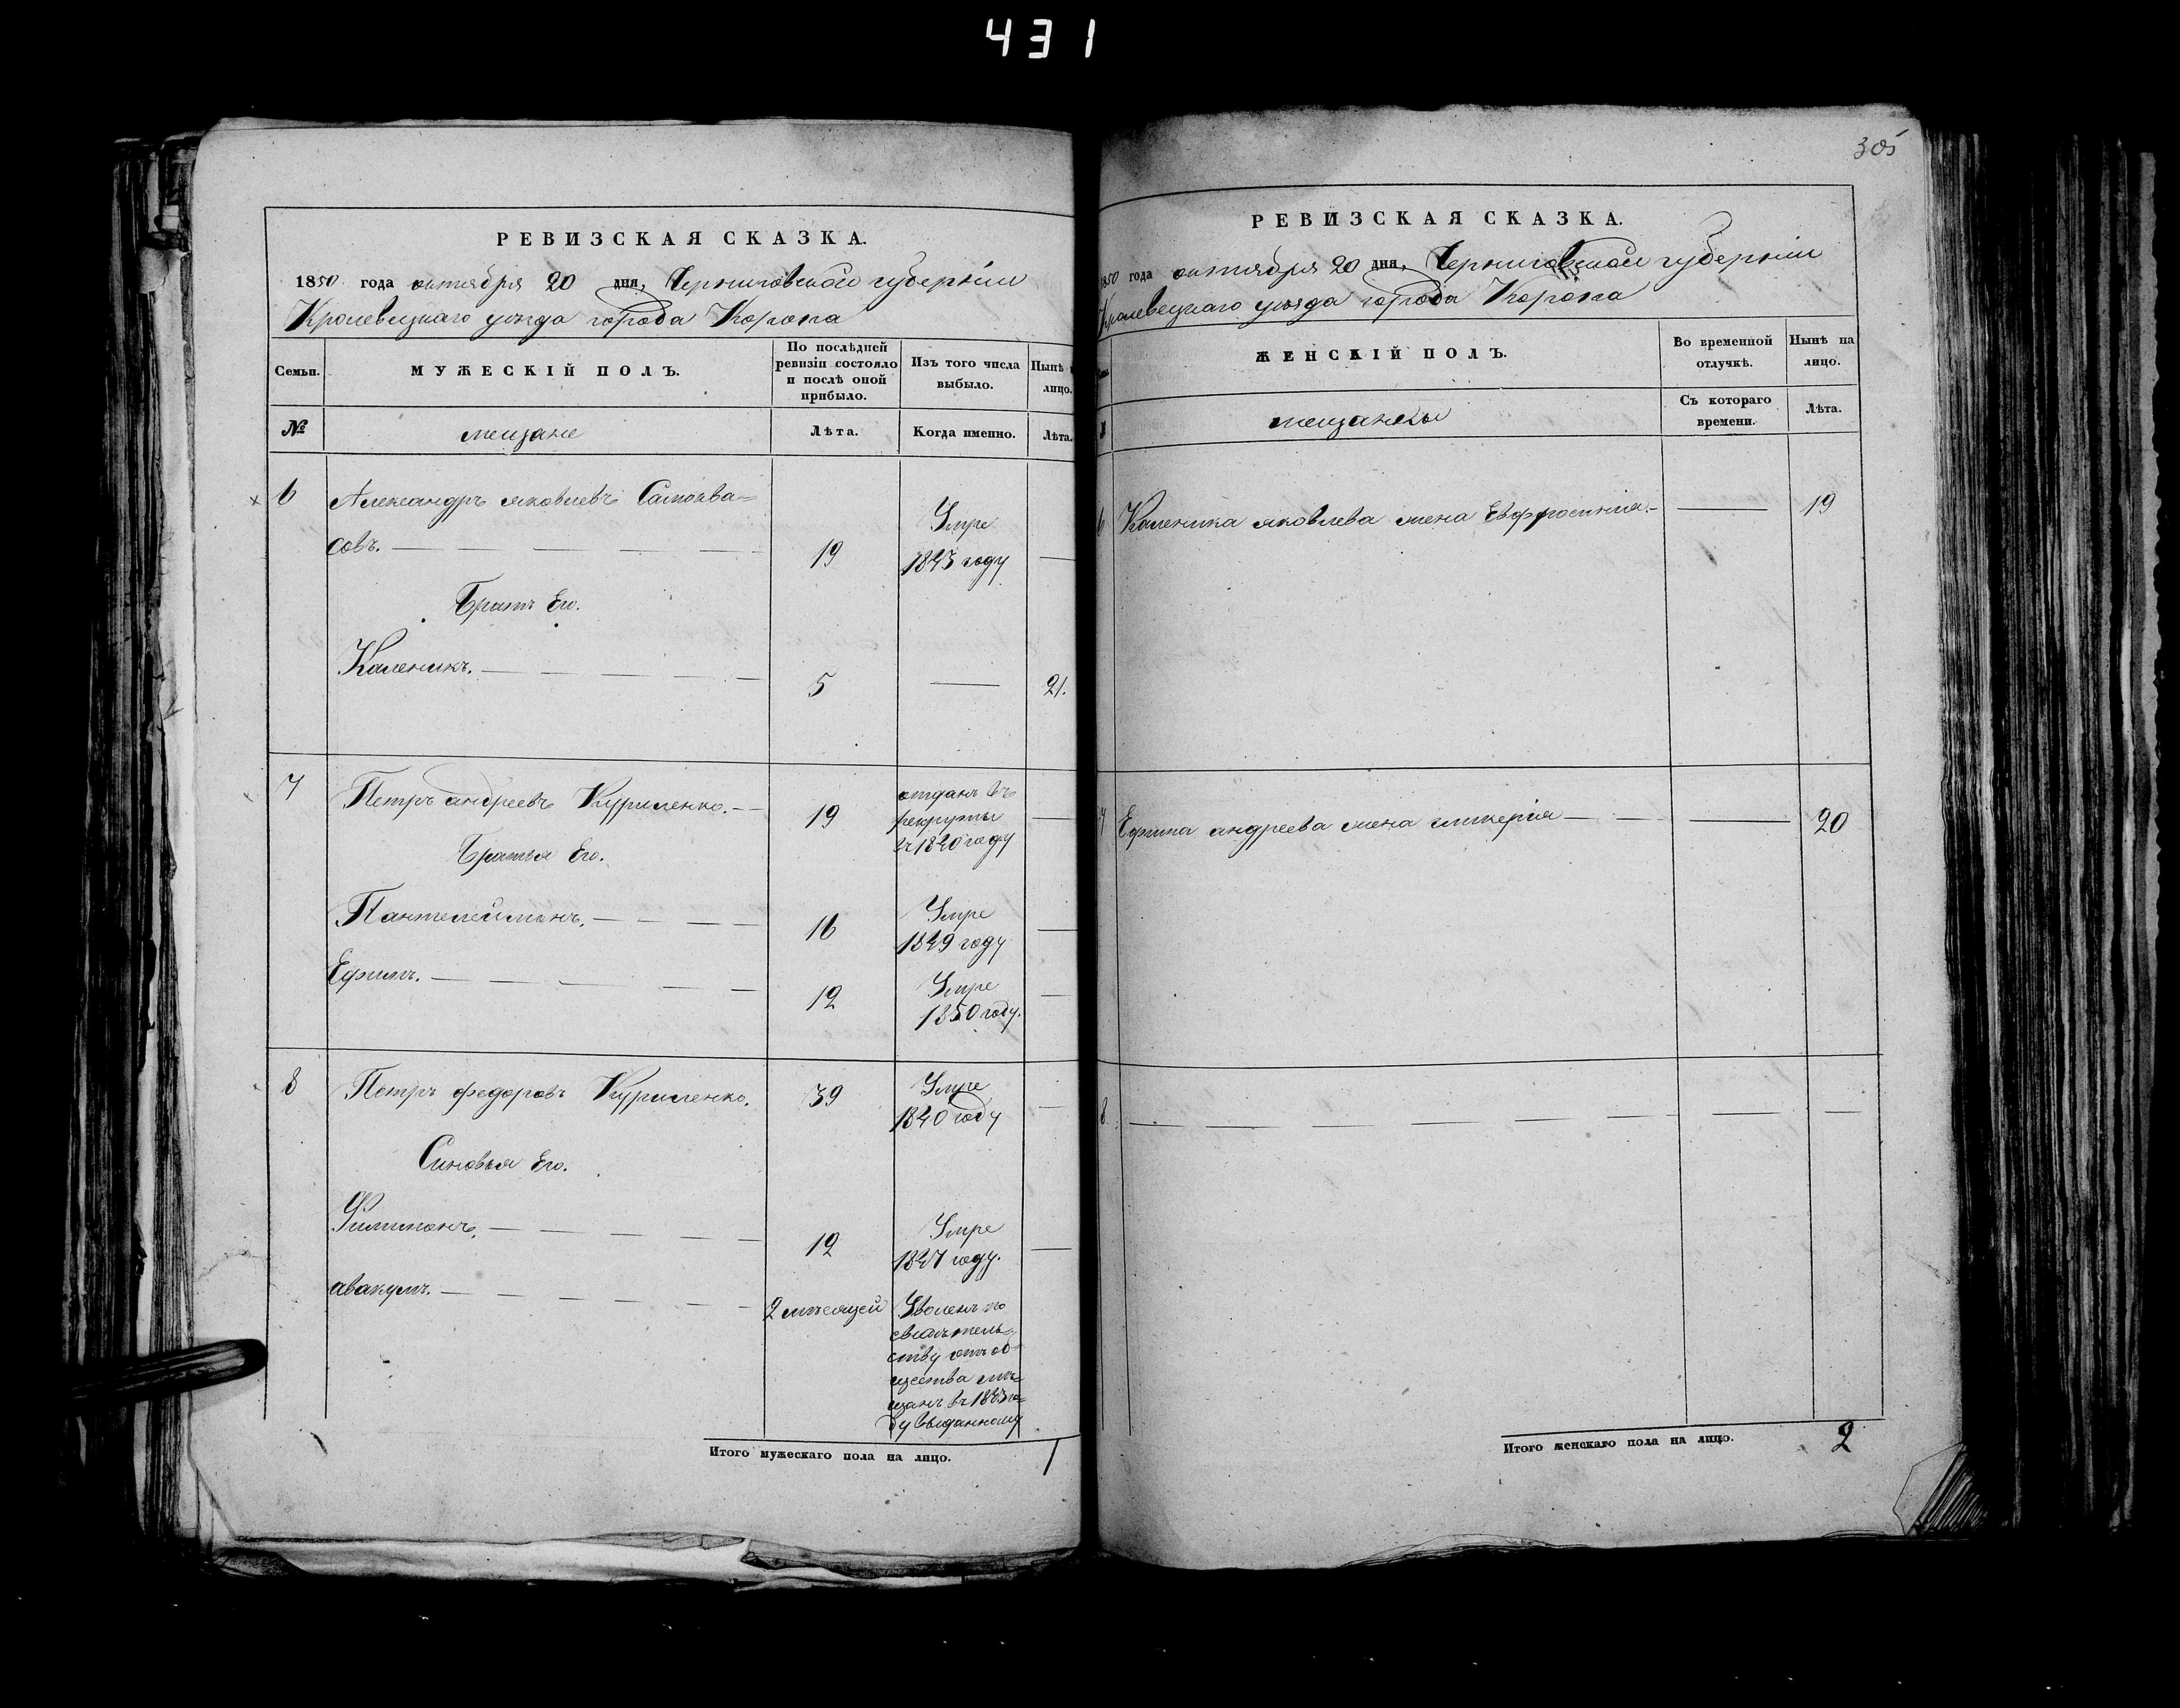 431
РЕВИЗСКАЯ СКАЗКА.
1850 года октября 20 дня, Черниговской губерніи
Кролевецкаго уѣзда города Коропа
Семьи.
МУЖЕСКІЙ ПОЛЪ.
По послѣдней ревизіи состояло и послѣ оной прибыло.
Изъ того числа выбыло.
Нынѣ
лицо.
№
мещане
Лѣта.
Когда именно.
Лѣта.
6
Александръ яковлевъ Самоква=
совъ.
19
Умре
1843 году
Братъ Его.
Каленикъ.
5
21.
7
Петръ андреевъ Куриленко.
19
отданъ въ
рекруты
въ 1840 году
Братья Его.
Пантелеймонъ.
16
Умре
1849 году
Ефимъ.
12
Умре
1850 году.
8
Петръ федоровъ Куриленко.
39
Умре
1840 году
Синовья Его.
Филимонъ.
12
Умре
1847 году.
авакумъ.
2 мѣсяцей
Уволенъ по
свидѣтель=
ству отъ об=
щества мѣ=
щанъ въ го=
ду выданному
Итого мужескаго пола на лицо.
1
305
РЕВИЗСКАЯ СКАЗКА.
1850 года октября 20 дня, Черниговской губерніи
Кролевецкаго уѣзда города Коропа
ЖЕНСКІЙ ПОЛЪ.
Во временной отлучкѣ.
Нынѣ на лицо.
мещанки
Съ котораго времени.
Лѣта.
6
Каленика яковлева жена Евфросинія.
19
7
Ефима андреева жена гликерія
20
8.
Итого женскаго пола на лицо.
2